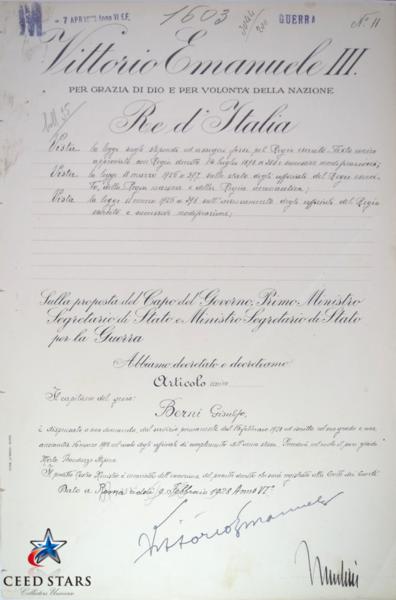 7 APR 1928 Anno VI E.F.
1603
GUERRA
N. 11
Vittorio Emanuele III.
PER GRAZIA DI DIO E PER VOLONTÀ DELLA NAZIONE
Re d'Italia
Vista la legge sugli stipendi ed assegni fissi pel Regio esercito, Testo unico
approvato con Regio decreto
Vista la legge 11 marzo 1926 n 397 sullo stato degli ufficiali del Regio eserci-
to, della Regia marina e della Regia aeronautica;
Vista la legge 11 marzo 1926 n 398 sull'avanzamento degli ufficiali del Regio
esercito e successive modificazioni;
Sulla proposta del Capo del Governo, Primo Ministro
Segretario di Stato e Ministro Segretario di Stato
per la Guerra
Abbiamo decretato e decretiamo
Articolo unico
Il capitano del genio:
Berni
è dispensato a sua domanda, dal servizio permanente dal 16 febbraio 1928 ed iscritto col suo grado e
anzianità nel ruolo degli ufficiali di complemento dell'arma stessa.
Il predetto Nostro Ministro è incaricato dell'esecuzione del presente decreto che sarà registrato alla Corte dei Conti
Dato a Roma addì 9 Febbraio 1928 Anno VI
Vittorio Emanuele
CEED STARS
Collectors Universe